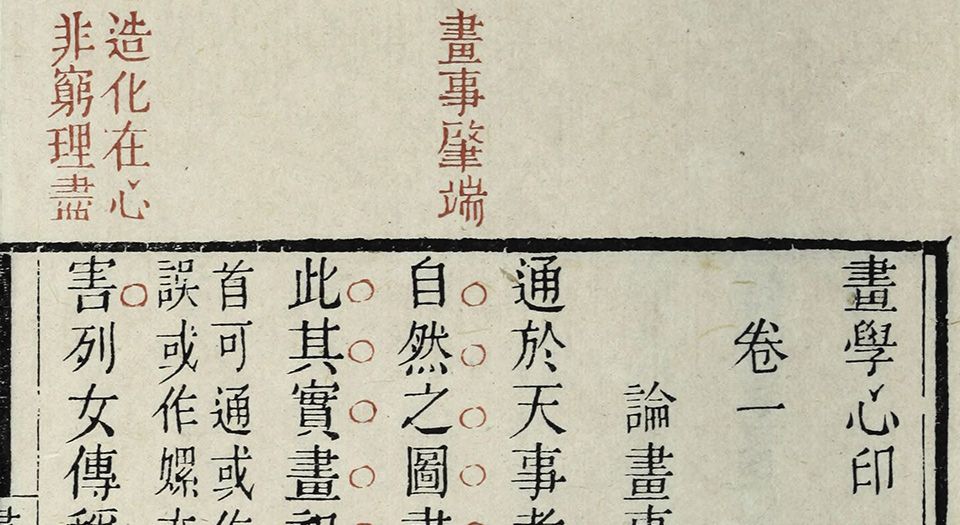 畫事肇端
造化在心
非窮理盡
畫學心印
卷一
論畫
通於天事
自然之圖
此其實畫
首可通或
誤或作嫘
害列女傳